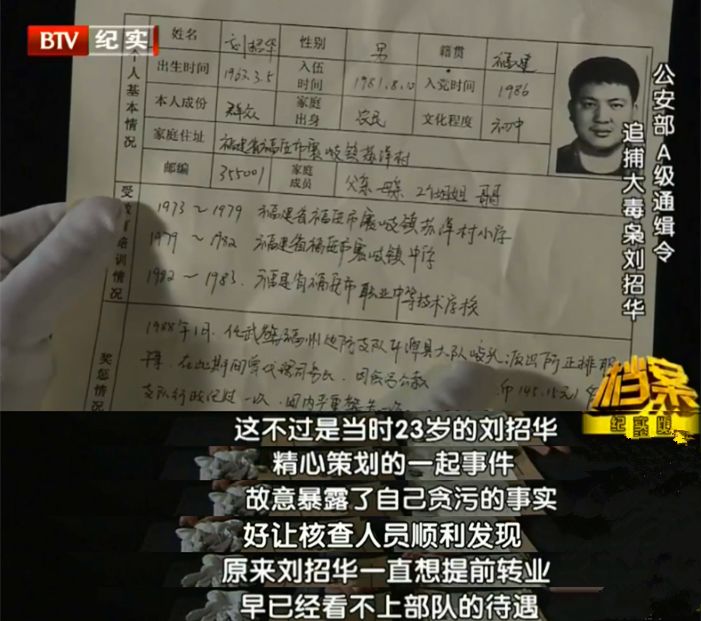 BTV 纪实
姓名 刘招华 性别 男 籍贯 福建
出生时间 1962.3.5 入伍时间 1981.8.10 入党时间 1986
本人成份 群众 家庭出身 农民 文化程度 初中
家庭住址 福建省福安市赛岐镇苏洋村
邮编 355001 家庭成员 父亲 母亲 2个姐姐 哥哥
个人基本情况
1973～1979 福建省福安市赛岐镇苏洋村小学
1979～1982 福建省福安市赛岐镇中学
1982～1983. 福建省福安市职业中等技术学校
受教育培训情况
1988年1月
奖惩情况
公安部A级通缉令
追捕大毒枭刘招华
档案
纪实版
这不过是当时23岁的刘招华
精心策划的一起事件
故意暴露了自己贪污的事实
好让核查人员顺利发现
原来刘招华一直想提前转业
早已经看不上部队的待遇